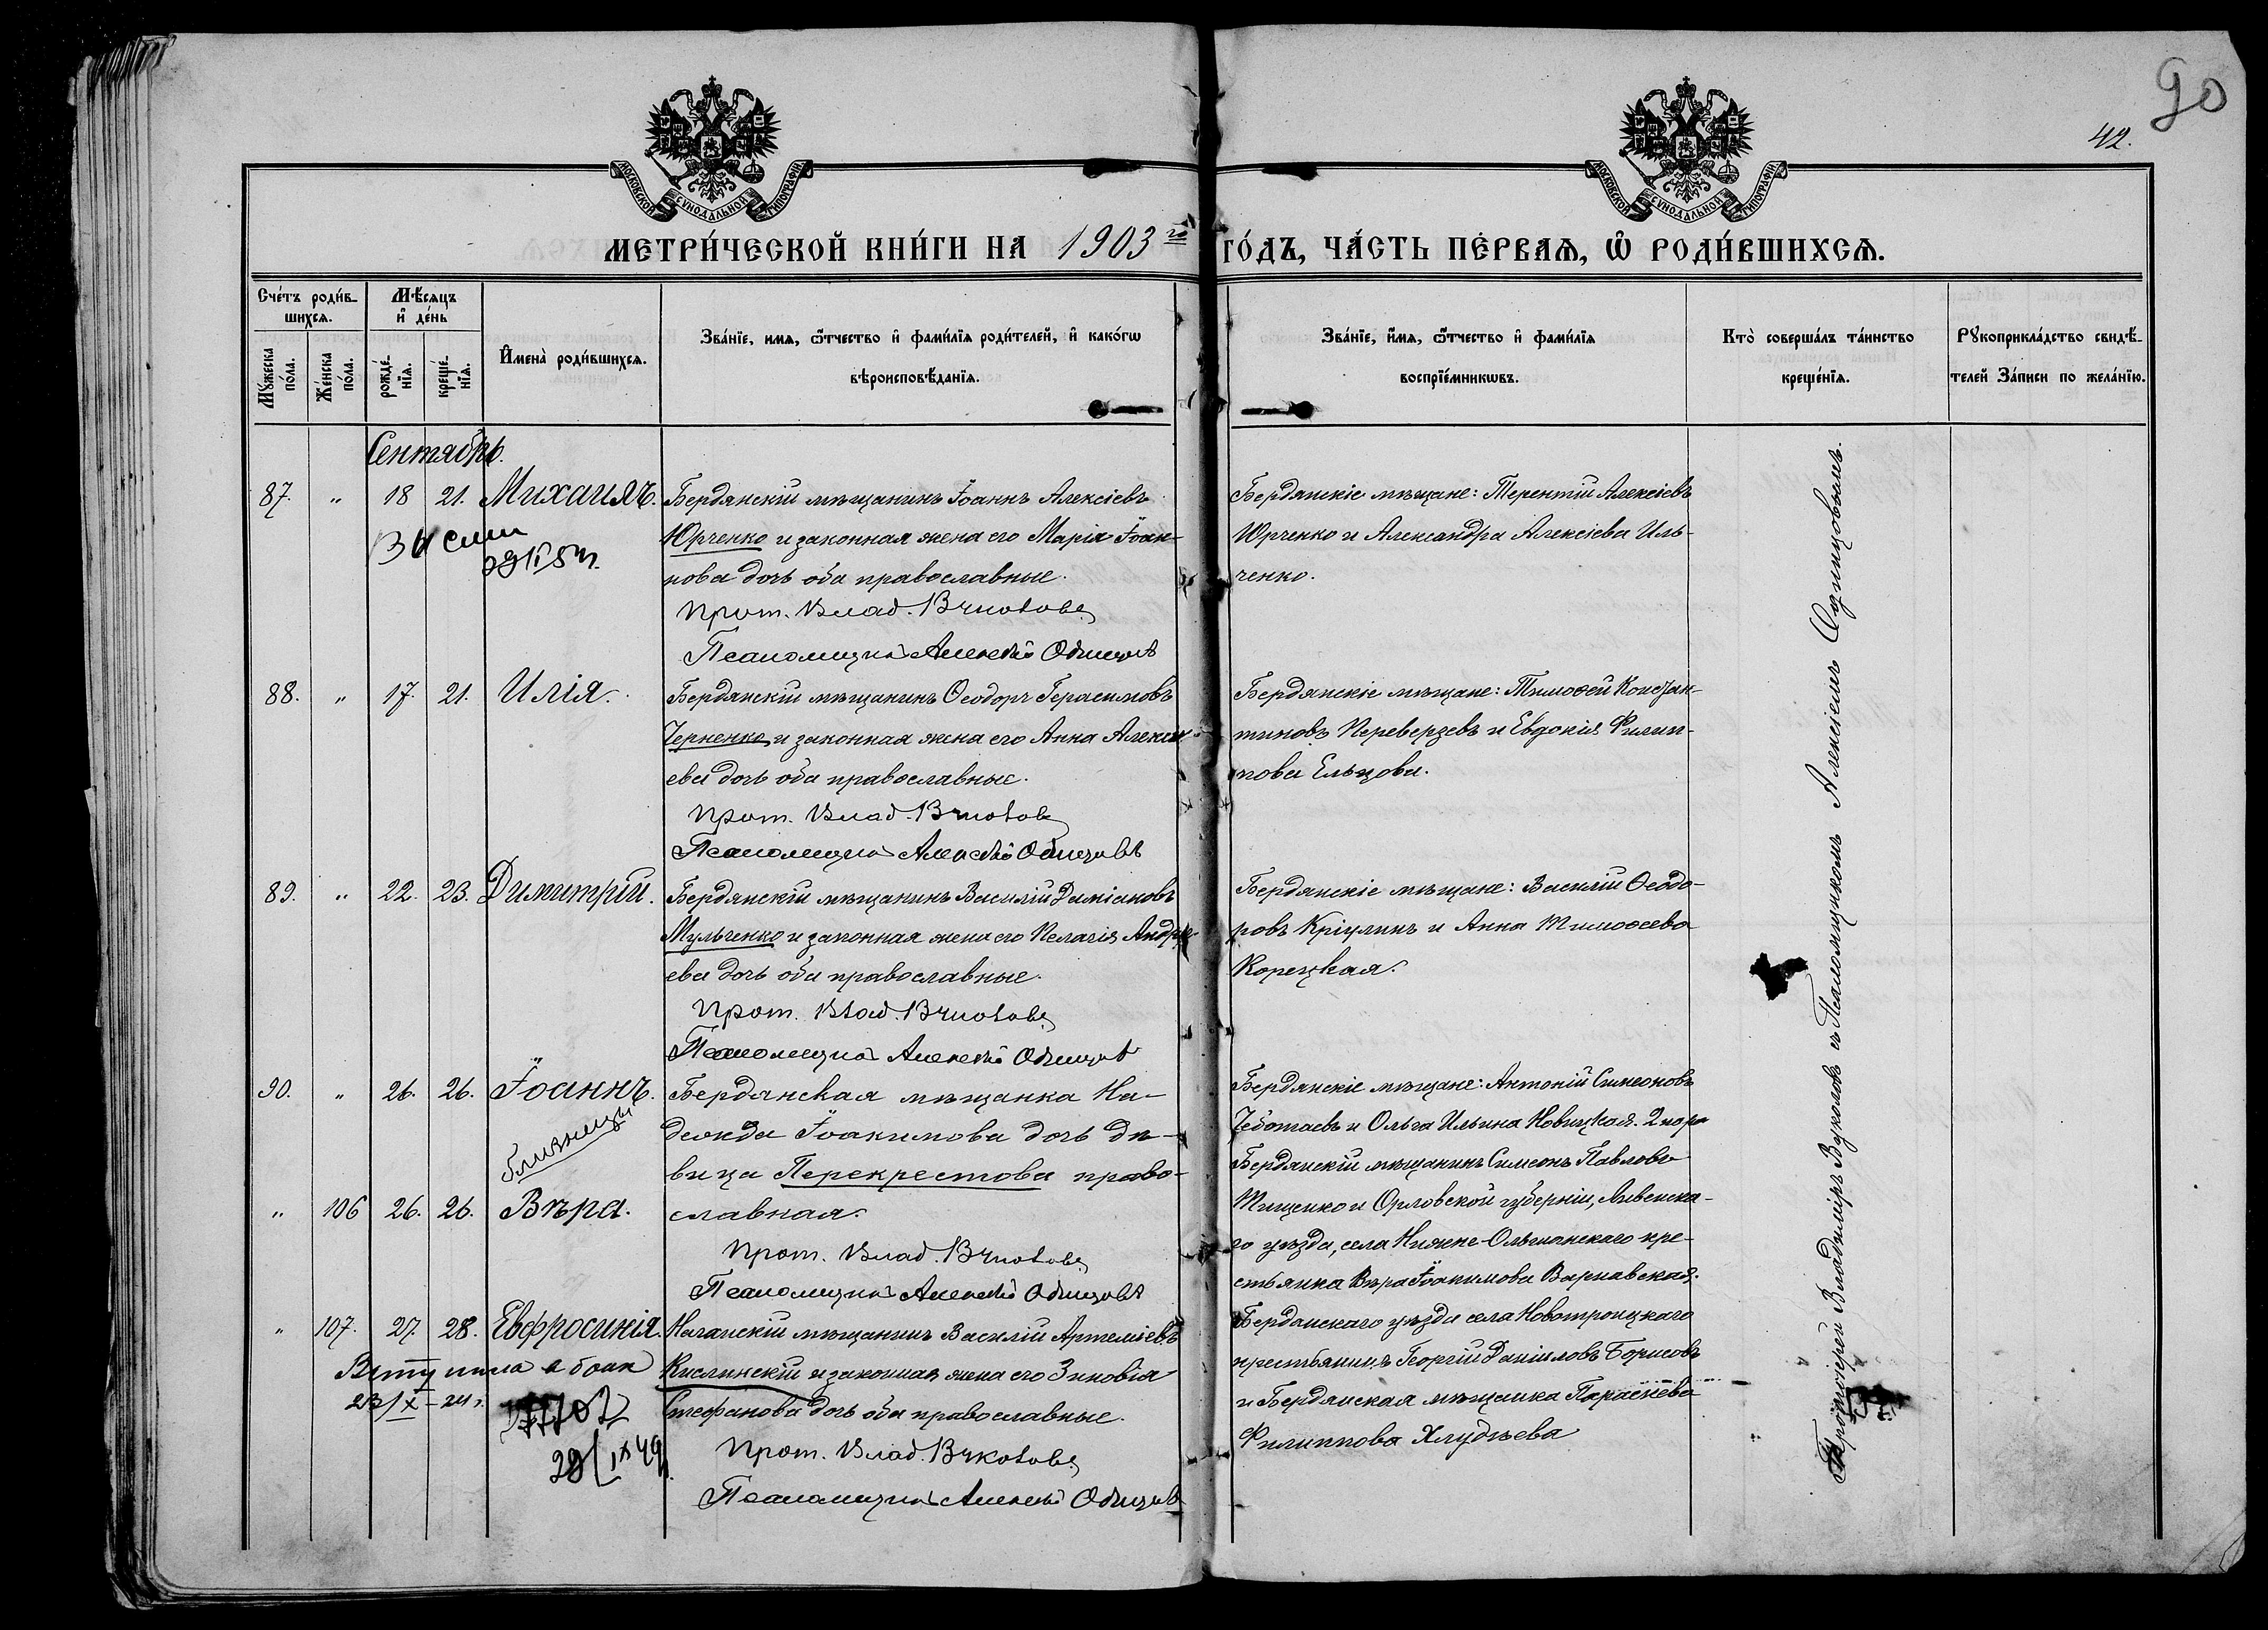 90
42.
МОСКОВСКОЙ СУНОДАЛЬНОЙ ТИПОГРАФІИ
МОСКОВСКОЙ СУНОДАЛЬНОЙ ТИПОГРАФІИ
МЕТРИ́ЧЕСКОЙ КНИ́ГИ НА 1903 го ГО́ДЪ, ЧА́СТЬ ПЕ́РВАѦ, Ѡ҆ РОДИ́ВШИХСѦ.
Сче́тъ роди́в-
шихсѧ.
Мꙋжеска по́ла.
Же́нска по́ла.
Мѣ́сѧцъ
и҆ де́нь
рожде́-
нїѧ.
креще́-
нїѧ.
И҆мена̀ роди́вшихсѧ.
Зва́нїе, имѧ, ѻ҆́тчество и҆ фами́лїѧ роди́телей, и҆ како́гѡ
вѣроисповѣ́данїѧ.
Зва́нїе, и҆́мѧ, ѻ҆́тчество и҆ фами́лїѧ
воспрїе́мникѡвъ.
Кто̀ соверша́лъ та́инство
креще́нїѧ.
Рꙋкоприкла́дство свидѣ́-
телей За́писи по жела́нїю.
Сентябрь.
87. " 18 21. Михаилъ.
Бердянскій мѣщанинъ Іоаннъ Алексіевъ
Юрченко и законная жена его Марія Іоан-
нова дочь оба православные.
Прот. Влад. Вуколовъ
Псаломщикъ Алексѣй Одинцовъ
Бердянскіе мѣщане: Терентій Алексіевъ
Юрченко и Александра Алексіева Иль-
ченко.
88. " 17. 21. Илія.
Бердянскій мѣщанинъ Ѳеодоръ Герасимовъ
Черненко и законная жена его Анна Алексі-
ева дочь оба православные.
Прот. Влад. Вуколовъ
Псаломщикъ Алексѣй Одинцовъ
Бердянскіе мѣщане: Тимоѳей Констан-
тиновъ Переверзевъ и Евдокія Филип-
пова Ельцова.
89. " 22. 23. Димитрій.
Бердянскій мѣщанинъ Василій Даміановъ
Мульченко и законная жена его Пелагія Андре-
ева дочь оба православные.
Прот. Влад. Вуколовъ
Псаломщикъ Алексѣй Одинцовъ
Бердянскіе мѣщане: Василій Ѳеодо-
ровъ Кріулинъ и Анна Тимоѳеева
Корецкая.
90. " 26. 26. Іоаннъ.
близнецы
" 106 26. 26. Вѣра.
Бердянская мѣщанка На-
дежда Іоакимова дочь дѣ-
вица Перекрестова право-
славная.
Прот. Влад. Вуколовъ
Псаломщикъ Алексѣй Одинцовъ
Бердянскіе мѣщане: Антоній Симеоновъ
Чеботаевъ и Ольга Ильина Новицкая. 2 пара
Бердянскій мѣщанинъ Симеонъ Павловъ
Тищенко и Орловской губерніи, Ливенска-
го уѣзда, села Нижне-Ольшанскаго кре-
стьянка Вѣра Іоакимова Варнавская.
" 107. 27. 28. Евфросинія.
Вступила в брак
23/X – 24 г.
Ногайскій мѣщанинъ Василій Артеміевъ
Кислинскій и законная жена его Зиновія
Стефанова дочь оба православные.
Прот. Влад. Вуколовъ
Псаломщикъ Алексѣй Одинцовъ
Бердянскаго уѣзда села Новотроицкаго
крестьянинъ Георгій Даніиловъ Борисовъ
и Бердянская мѣщанка Параскева
Филиппова Хлудѣева
Протоіерей Владиміръ Вуколовъ съ Псаломщикомъ Алексіемъ Одинцовымъ.